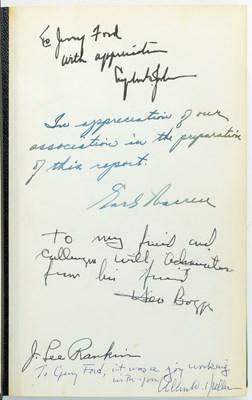 To Jerry Ford
with appreciation
Lyndon B. Johnson
In appreciation of our
association in the preparation
of this report.
Earl Warren
To my friend and
colleague with admiration
from his friend
Hale Boggs
J. Lee Rankin
To Gerry Ford, it was a joy working
with you Allen W. Dulles